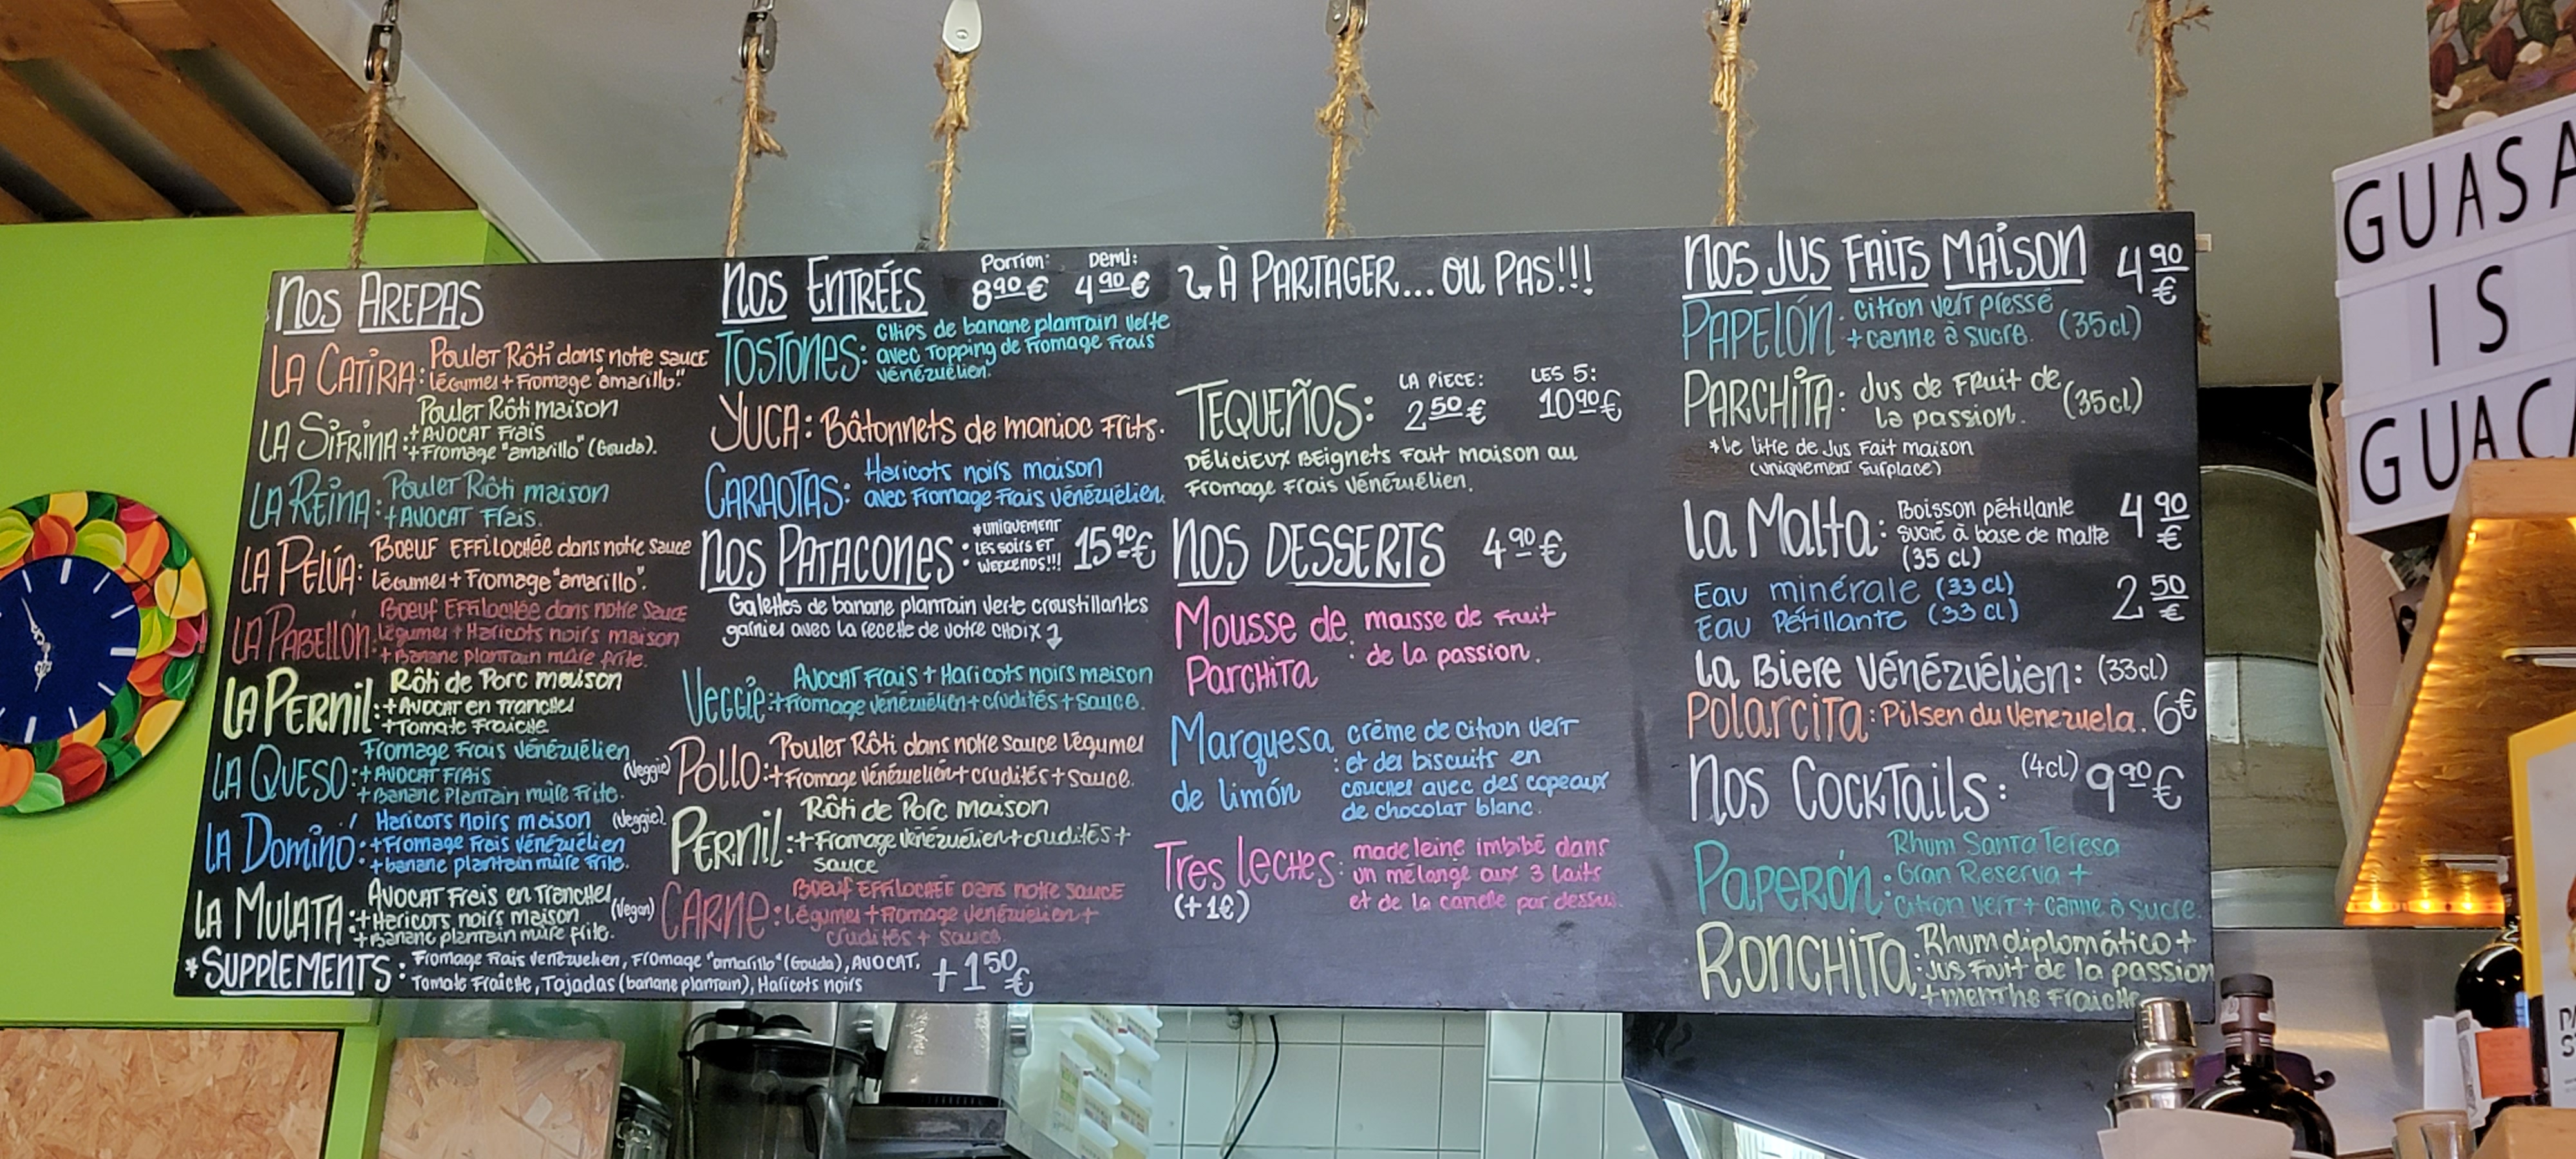 Nos Arepas
La Catira: Poulet Rôti dans notre sauce
légumes + Fromage "amarillo".
Poulet Rôti maison
La Sifrina: + Avocat Frais
+ Fromage "amarillo" (Gouda).
La Reina: Poulet Rôti maison
+ Avocat Frais.
La Pelúa: Boeuf Effilochée dans notre sauce
légumes + Fromage "amarillo".
Boeuf Effilochée dans notre sauce
La Pabellón: légumes + Haricots noirs maison
+ Banane plantain mûre frite.
La Pernil: Rôti de Porc maison
+ Avocat en tranches
+ Tomate Fraîche
Fromage Frais Vénézuélien
La Queso: + Avocat Frais (Veggie)
+ Banane Plantain mûre Frite.
Haricots noirs maison (Veggie).
La Dominó: + Fromage Frais Vénézuélien
+ banane plantain mûre frite.
Avocat Frais en tranches
La Mulata: + Haricots noirs maison (Vegan)
+ Banane plantain mûre frite.
*Supplements: Fromage Frais Venézuelien, Fromage "amarillo" (Gouda), Avocat,
Tomate Fraîche, Tajadas (banane plantain), Haricots noirs
+ 1,50 €
Nos Entrées
Portion: 8,90 €
Demi: 4,90 €
Tostones: Chips de banane plantain verte
avec topping de Fromage Frais
vénézuélien.
Yuca: Bâtonnets de manioc Frits.
Caraotas: Haricots noirs maison
avec Fromage Frais Vénézuélien.
Nos Patacones: *uniquement
les soirs et
weekends!!!
15,90 €
Galettes de banane plantain verte croustillantes
garnies avec la recette de votre choix
Avocat Frais + Haricots noirs maison
Veggie: + Fromage Vénézuélien + crudités + sauce.
Pollo: Poulet Rôti dans notre sauce légumes
+ Fromage Vénézuelien + crudités + sauce.
Rôti de Porc maison
Pernil: + Fromage Vénézuelien + crudités +
sauce
Boeuf Effilochée dans notre sauce
Carne: légumes + Fromage Venézuelien +
crudités + sauce.
À Partager... ou pas!!!
Tequeños: La Piece: 2,50 €
Les 5: 10,90 €
Délicieux Beignets Fait maison au
Fromage Frais Vénézuélien.
Nos Desserts 4,90 €
Mousse de mousse de Fruit
Parchita : de la passion.
Marquesa crème de citron vert
: et des biscuits en
de limón couches avec des copeaux
de chocolat blanc.
Tres leches: madeleine imbibé dans
un mélange aux 3 laits
(+1€) et de la canelle par dessus.
Nos Jus Faits Maison 4,90 €
Papelón: citron vert pressé
+ canne à sucre. (35cl)
Parchita: Jus de Fruit de
la passion. (35cl)
*Le litre de Jus Fait maison
(uniquement surplace)
La Malta: Boisson pétillante
sucré à base de malte
(35 cl)
4,90 €
Eau minérale (33 cl)
Eau Pétillante (33 cl)
2,50 €
La Biere Vénézuélien: (33cl)
Polarcita: Pilsen du Venezuela. 6€
Nos Cocktails: (4cl) 9,90 €
Rhum Santa Teresa
Paperón: Gran Reserva +
Citron vert + canne à sucre.
Ronchita: Rhum diplomático +
Jus Fruit de la passion
+ menthe Fraiche
GUASA
IS
GUACA